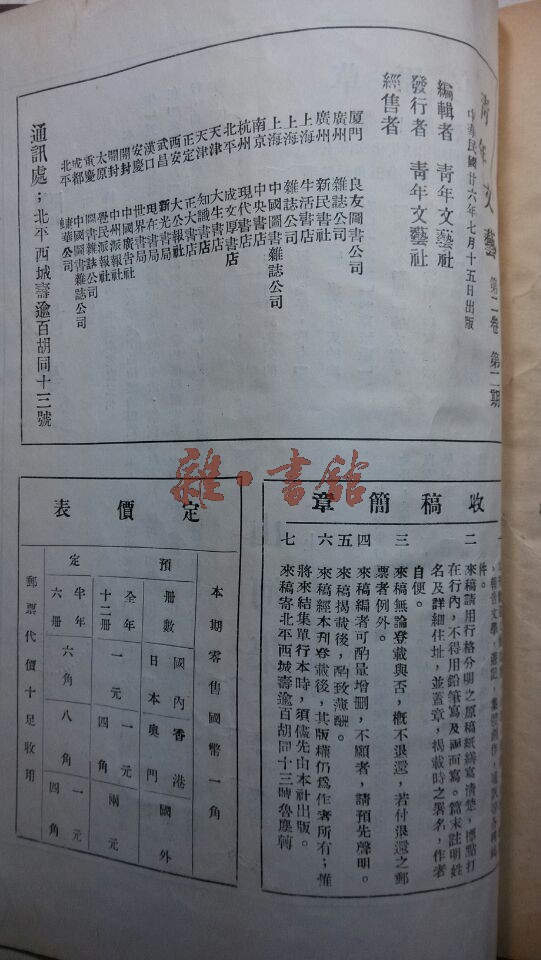 青年文藝 第二卷 第二期
中華民國廿六年七月十五日出版
編輯者 青年文藝社
發行者 青年文藝社
經售者
廈門 良友圖書公司
廣州 雜誌公司
廣州 新民書社
上海 生活書店
上海 雜誌公司
上海 中國圖書雜誌公司
南京 中央書店
杭州 現代書局
北平 成文厚書店
天津 大生書店
天津 知識書店
正定 正大書店
西安 大公報社
武昌 新光書局
漢口 現在書局
安慶 世界書局
開封 中國廣告社
開封 中州派報社
太原 覺民派報社
重慶 圖書雜誌公司
成都 中國圖書雜誌公司
北平 華公司
通訊處：北平西城壽逾百胡同十三號
雜·書館
收稿簡章
二 來稿請用行格分明之原稿紙繕寫清楚，標點打
在行內，不得用鉛筆寫及兩面寫。篇末註明姓
名及詳細住址，並蓋章，揭載時之署名，作者
自便。
三 來稿無論登載與否，概不退還，若付退還之郵
票者例外。
四 來稿編者可酌量增刪，不願者，請預先聲明。
五 來稿揭載後，酌致薄酬。
六 來稿經本刊登載後，其版權仍爲作者所有；惟
將來結集單行本時，須儘先由本社出版。
七 來稿寄北平西城壽逾百胡同十三號魯塵轉
定價表
本期零售國幣一角
預定
冊數 國內日本 香港澳門 國外
全年十二冊 一元 一元四角 兩元
半年六冊 六角 八角 一元四角
郵票代價十足收用